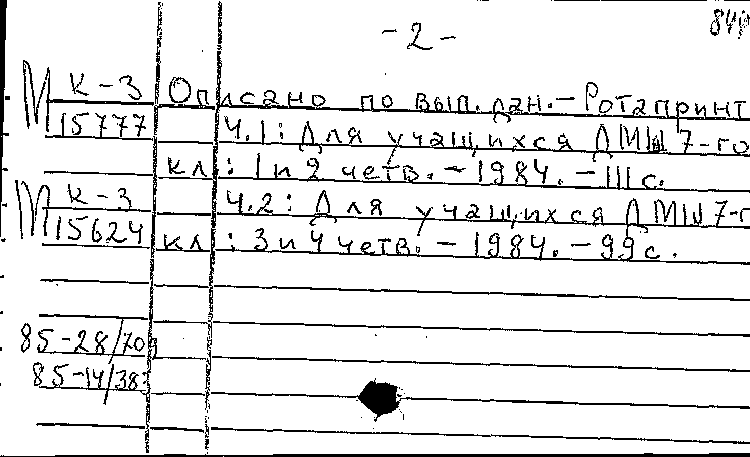 - 2 -
М К-3 Описано по вып. дан. - Ротапринт
15777 Ч.1: Для учащихся ДМШ 7-го
кл.: 1 и 2 четв. - 1984. - 111 с.
М К-3 Ч.2: Для учащихся ДМШ 7-г
15624 кл.: 3 и 4 четв. - 1984. - 99 с.
85-28/70
85-14/38